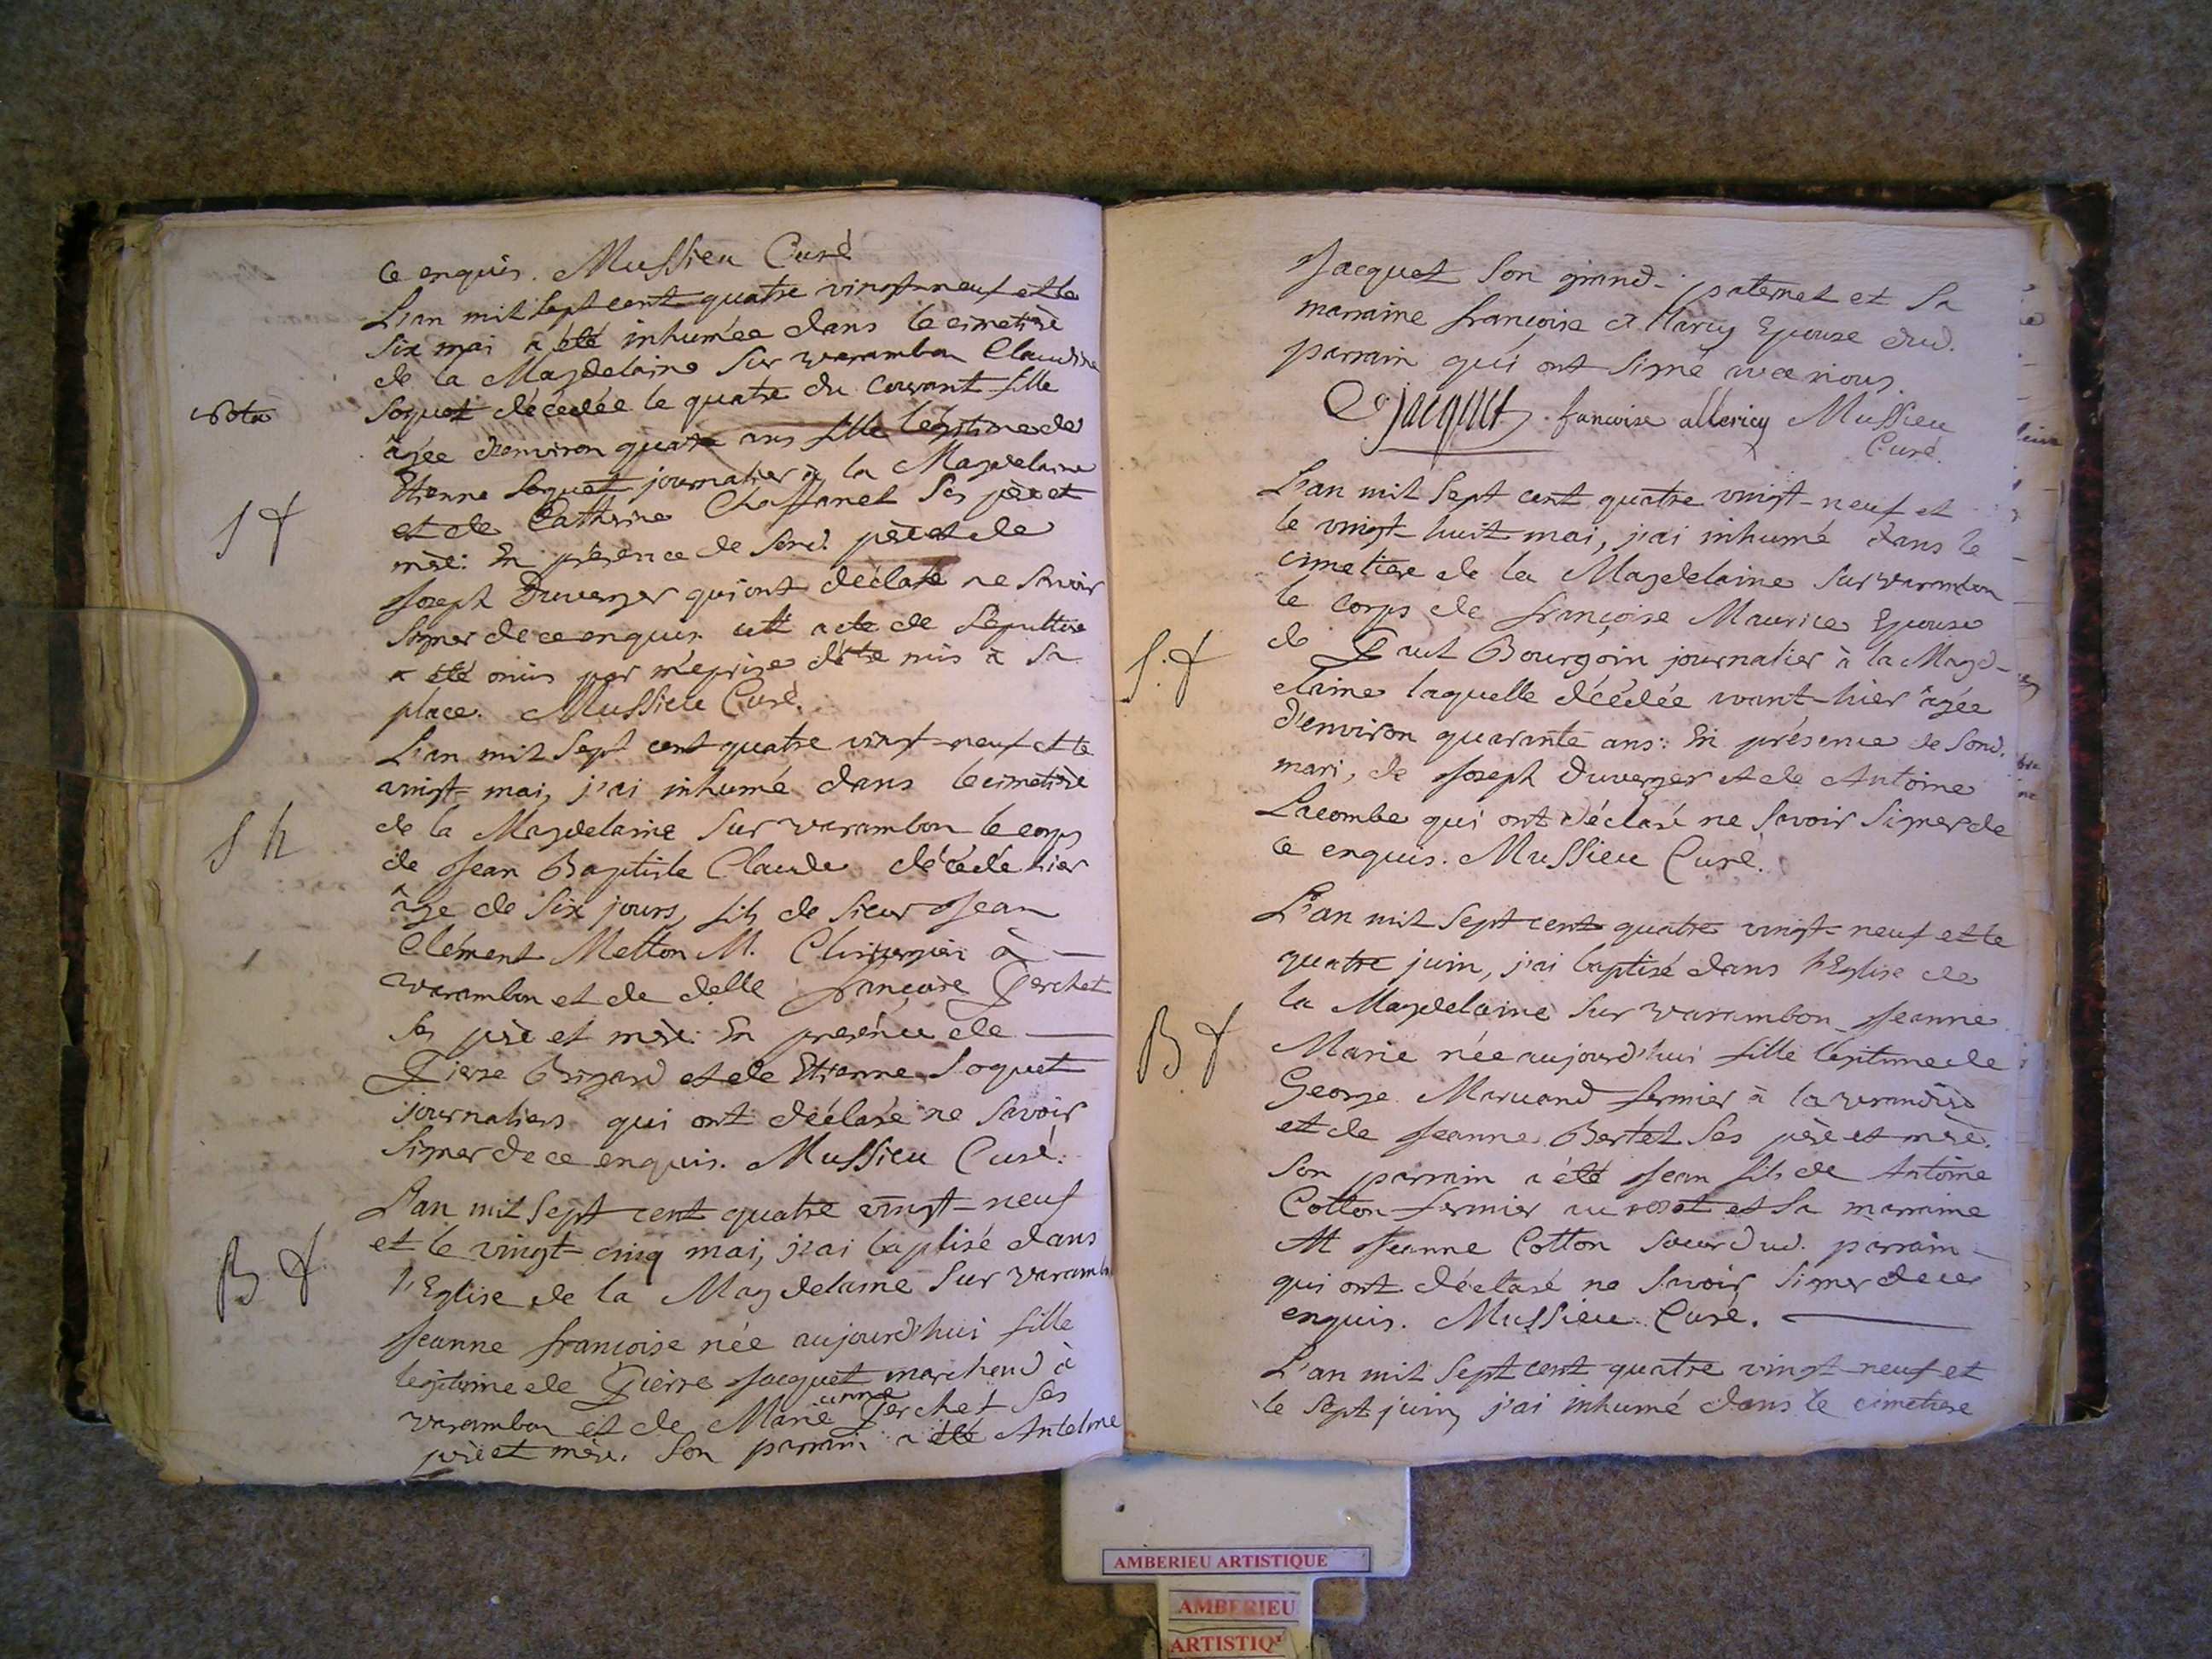 ce enquis. Mussieu Curé
L'an mil sept cent quatre vingt-neuf et le
six mai a été inhumée dans le cimetière
de la Magdelaine sur varambon Claudine
Nota
Soquet décédée le quatre du courant fille
âgée d'environ quatre ans fille légitime de
Etienne Soquet journalier à la Magdelaine
S f
et de Catherine Chaffanel ses père et
mère: En présence de sond. père et de
Joseph Duverger qui ont déclaré ne savoir
signer de ce enquis. cett acte de sépulture
a été omis par méprise d'être mis à sa
place. Mussieu Curé.
L'an mil sept cent quatre vingt-neuf et le
vingt mai, j'ai inhumé dans le cimetière
S h
de la Magdelaine sur varambon le corps
de Jean Baptiste Claude décédé hier
âge de six jours, fils de sieur Jean
Clément Metton M. Chirurgien à
varambon et de delle françoise Perchet
ses père et mère: En présence de
Pierre Brigard et de Etienne Soquet
journaliers qui ont déclaré ne savoir
signer de ce enquis. Mussieu Curé.
L'an mil sept cent quatre vingt-neuf
et le vingt-cinq mai, j'ai baptisé dans
B. f.
l'Eglise de la Magdelaine sur varambon
Jeanne françoise née aujourd'hui fille
légitime de Pierre Jacquet marchand à
anne
varambon et de Marie Perchet ses
père et mère. Son parrain a été Antelme
Jacquet son grand- paternel et sa
marraine françoise Epouse dud.
parrain qui ont signé avec nous.
Jacquet. francoise allericy Mussieu
Curé.
L'an mil sept cent quatre vingt-neuf et
le vingt-huit mai, j'ai inhumé dans le
cimetiere de la Magdelaine sur varambon
le corps de françoise Maurice Epouse
S. f
de Paul Bourgoin journalier à la Magd-
elaine laquelle décédée avant-hier âgée
d'environ quarante ans: En présence de sond.
mari, de Joseph Duverger et de Antoine
Lacombe qui ont déclaré ne savoir signer de
ce enquis. Mussieu Curé.
L'an mil sept cent quatre vingt-neuf et le
quatre juin, j'ai baptisé dans l'Eglise de
la Magdelaine sur varambon Jeanne
B f
Marie née aujourd'hui fille légitime de
George Maruand fermier à la
et de Jeanne Bertet ses père et mère.
Son parrain a été Jean fils de Antoine
Cotton fermier au et sa marraine
M Jeanne Cotton soeur dud. parrain
qui ont déclaré ne savoir signer de ce
enquis. Mussieu Curé.
L'an mil sept cent quatre vingt-neuf et
le sept juin, j'ai inhumé dans le cimetiere
AMBERIEU ARTISTIQUE
AMBERIEU
ARTISTIQ